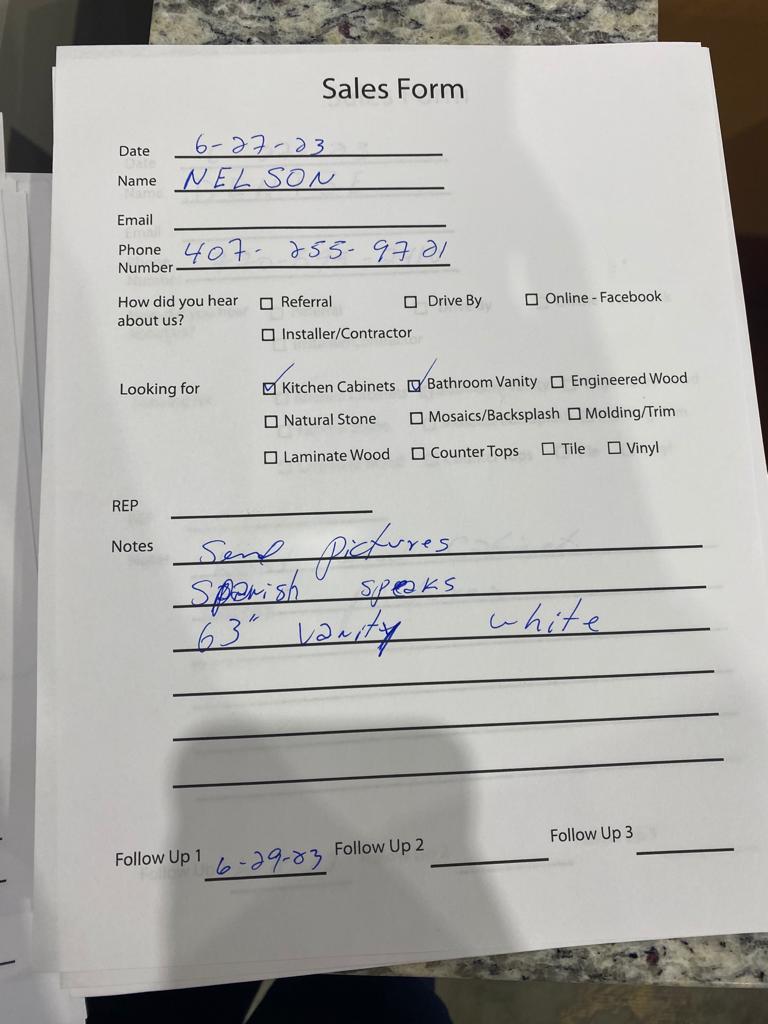 Sales Form
Date 6-27-23
Name NELSON
Email
Phone Number 407-255-9721
How did you hear about us? ☐ Referral ☐ Drive By ☐ Online - Facebook
☐ Installer/Contractor
Looking for ☑ Kitchen Cabinets ☑ Bathroom Vanity ☐ Engineered Wood
☐ Natural Stone ☐ Mosaics/Backsplash ☐ Molding/Trim
☐ Laminate Wood ☐ Counter Tops ☐ Tile ☐ Vinyl
REP
Notes Send pictures
Spanish speaks
63" vanity white
Follow Up 1 6-29-23 Follow Up 2 Follow Up 3